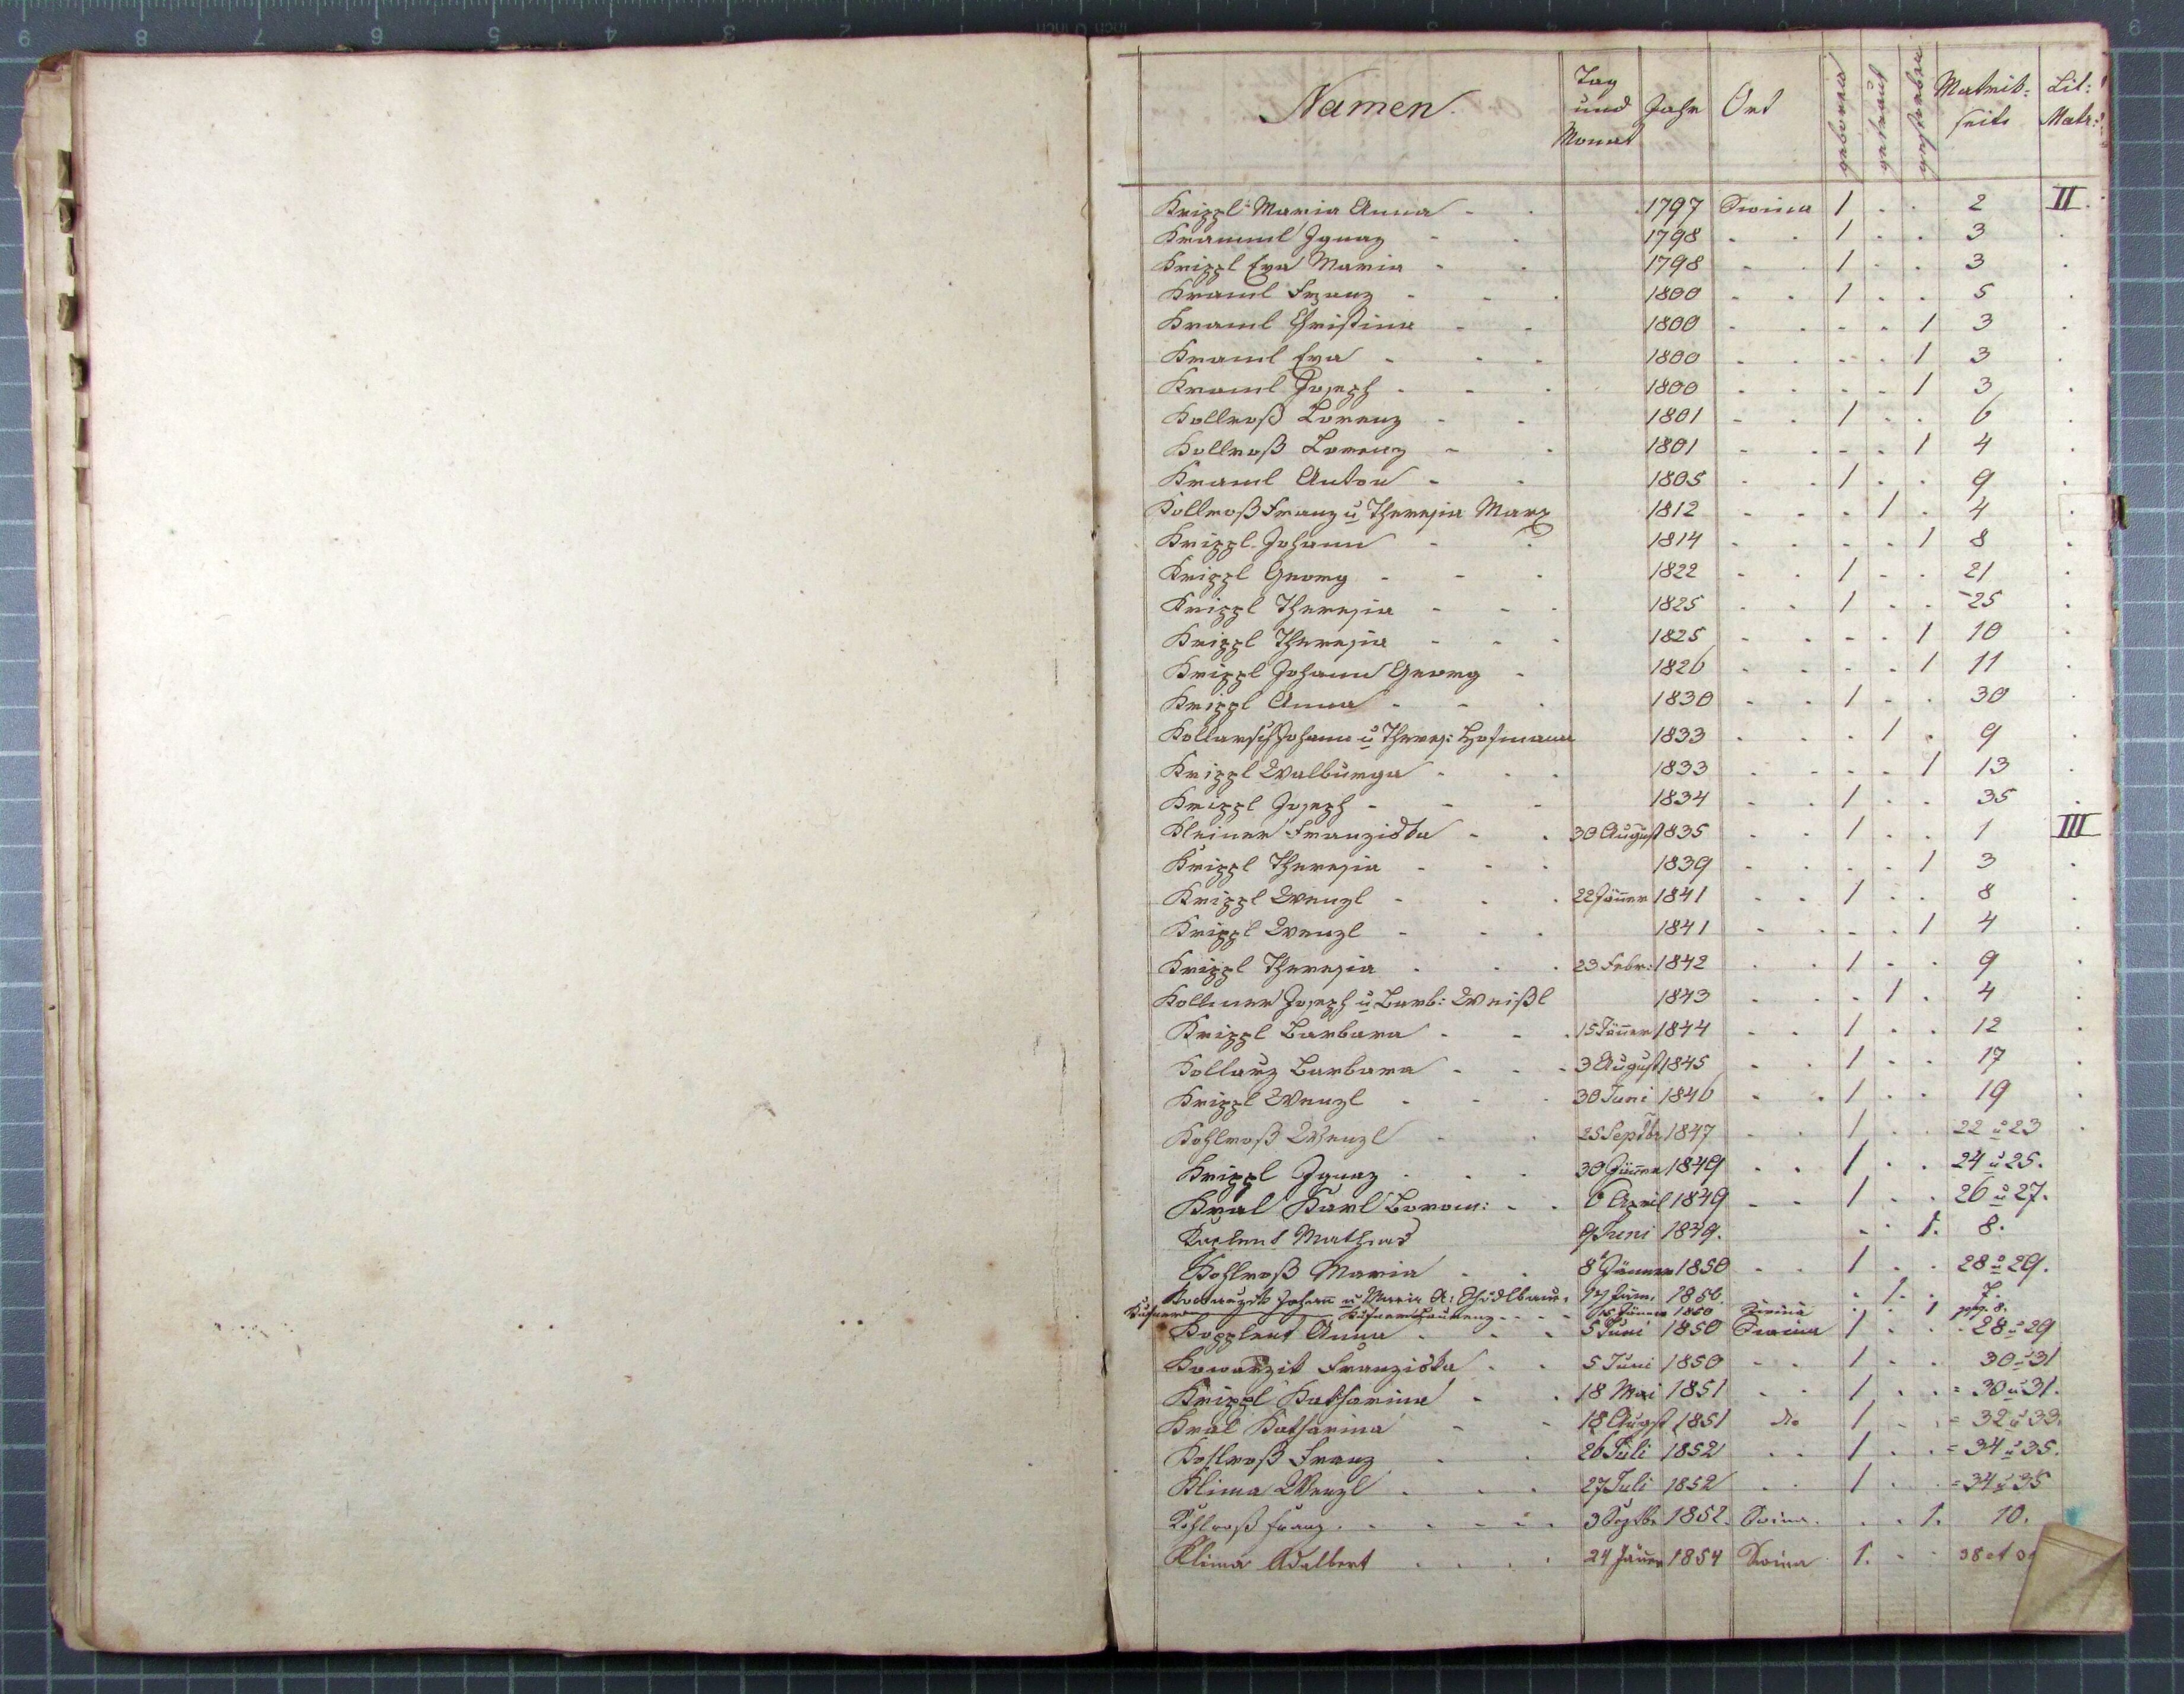 Namen. Tag und Monat Jahr Ort geboren getraut gestorben Matrik: seite Lit: Matr:
Krippl Maria Anna - . 1797 Swina 1 . . 2 II.
Krammel Ignaz - . 1798 . . 1 . . 3 .
Krippl Eva Maria - . 1798 - . 1 - . 3 .
Kraml Franz - - . 1800 - . 1 . . 5 .
Kraml Christina - - 1800 . . - . 1 3 .
Kraml Eva - - - 1800 . . - . 1 3 .
Kraml Joseph - - . 1800 . . - . 1 3 .
Kollroß Lorenz - . 1801 - . 1 . . 6 .
Kollroß Lorenz - . 1801 - . - . 1 4 .
Kraml Anton - . 1805 . . 1 . . 9 .
Kollroß Franz u Theresia Marx 1812 - . . 1 . 4 .
Krippl Johann - . 1814 - . - . 1 8 .
Krippl Georg - - . 1822 - . 1 - . 21 .
Krippl Theresia - - - 1825 . . 1 . . 25 .
Krippl Theresia - - - 1825 . . - . 1 10 .
Krippl Johann Georg - 1826 . . - . 1 11 .
Krippl Anna - - . 1830 - . 1 - . 30 .
Kollarsch Johann u Theres: Hofmann 1833 . . . 1 . 9
Krippl Walburga . . . 1833 . - - . 1 13 .
Krippl Joseph - - - 1834 - . 1 . . 35 .
Kleiner Franziska - . 30 August 1835 . . 1 . . 1 III
Krippl Theresia - - . 1839 . . . . 1 3 .
Krippl Wenzl - . . 22 Jäner 1841 . . 1 . . 8 .
Krippl Wenzl - - . 1841 . . - . 1 4 .
Krippl Theresia . . . 23 Febr: 1842 . . 1 - . 9 .
Kollmer Joseph u Barb: Weißl 1843 . . - 1 . 4 .
Krippl Barbara - - . 15 Jäner 1844 . . 1 . . 12 .
Kollarz Barbara - - - 3 August 1845 . . 1 . . 17 .
Krippl Wenzl . - . 30 Juni 1846 . . 1 . . 19 .
Kohlroß Wenzl - . 25 Septbr 1847 - . 1 . . 22 u 23 .
Krippl Ignaz . . . 30 Jäner 1849 . . 1 . . 24 u 25.
Kral Karl Borom: - . 6 April 1849 - - 1 . . 26 u 27.
Mathias 9 Juni 1849. - . 1. 8.
Kohlroß Maria . . 8 Jänner 1850 . . 1 . . 28 u 29.
Johann u Maria A: 1850. . 1. . 7.
Jänner 1850 Swina . . 1 pag. 8.
Kopplent Anna . . . 5 Juni 1850 Swina 1 . . 28 u 29
Kowarzik Franziska . . 5 Juni 1850 - . 1 . . 30 u 31
Krippl Katharina - . 18 Mai 1851 . . 1 . . = 30 u 31.
Kral Katharina - - 18 Augst 1851 do 1 - . = 32 u 33.
Kohlroß Franz . . 26 Juli 1852 . . 1 . . = 34 u 35.
Klima Wenzl . . . 27 Juli 1852 . . 1 . . = 34 u 35
Kohlroß Franz . . . . . 3 Septbr 1852. Swina. . . 1. 10.
Klima Adalbert . . . . 24 Jäner 1854 Swina 1. . . 38 et